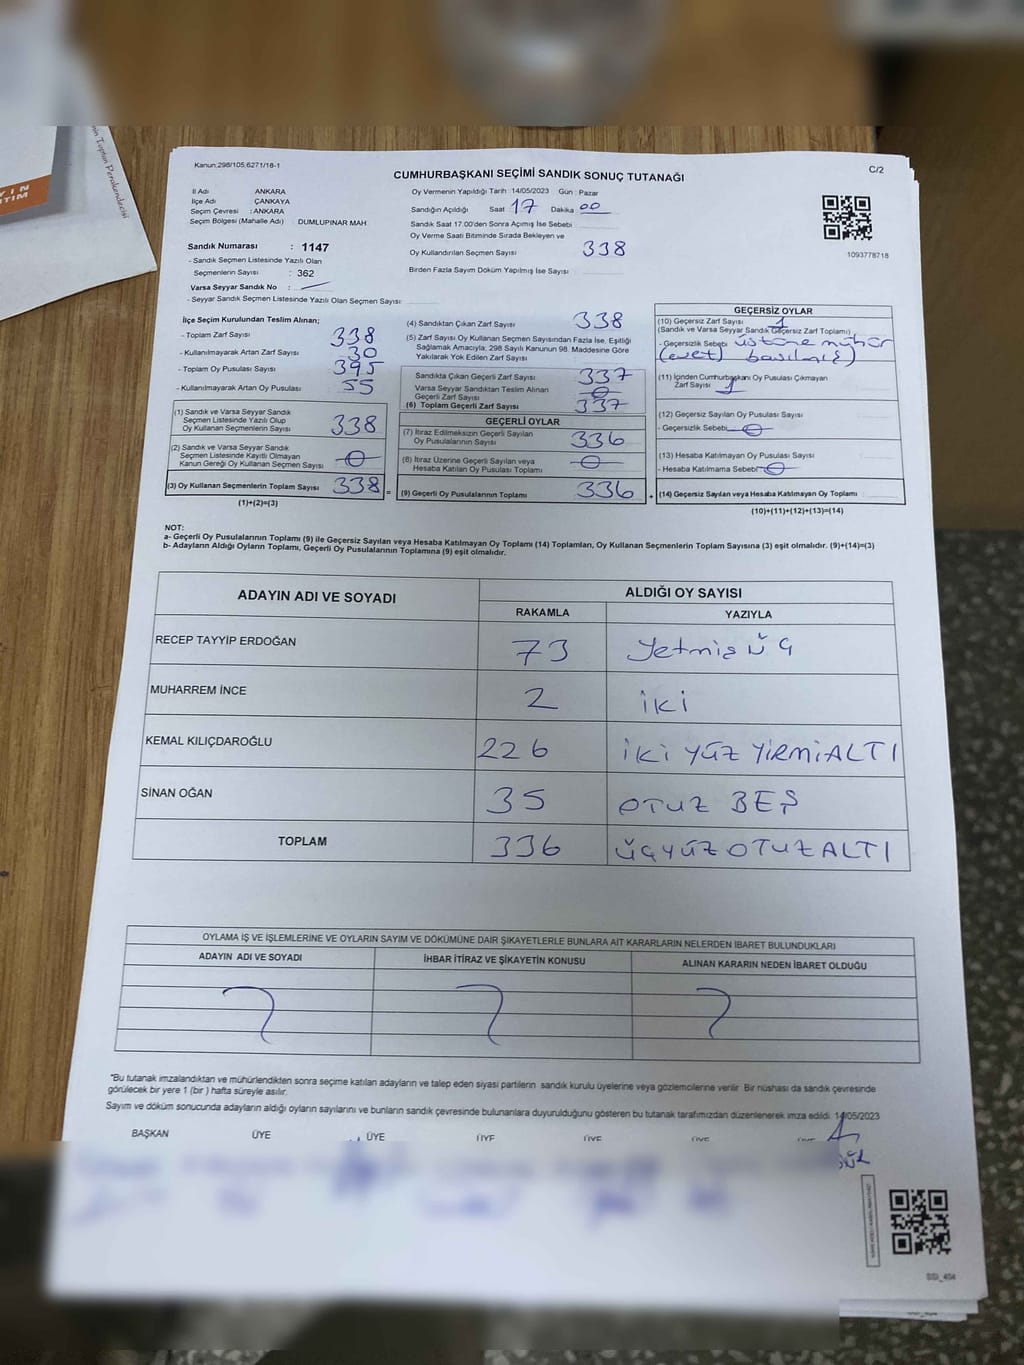 Kanun:298/105;6271/18-1
CUMHURBAŞKANI SEÇİMİ SANDIK SONUÇ TUTANAĞI
C/2
İl Adı ANKARA
İlçe Adı ÇANKAYA
Seçim Çevresi : ANKARA
Seçim Bölgesi (Mahalle Adı) DUMLUPINAR MAH
Sandık Numarası : 1147
- Sandık Seçmen Listesinde Yazılı Olan
Seçmenlerin Sayısı : 362
Varsa Seyyar Sandık No :
- Seyyar Sandık Seçmen Listesinde Yazılı Olan Seçmen Sayısı:
Oy Vermenin Yapıldığı Tarih : 14/05/2023 Gün : Pazar
Sandığın Açıldığı Saat 17 Dakika 00
Sandık Saat 17.00'den Sonra Açımış İse Sebebi
Oy Verme Saati Bitiminde Sırada Bekleyen ve
Oy Kullandırılan Seçmen Sayısı 338
Birden Fazla Sayım Döküm Yapılmış İse Sayısı
1093778718
İlçe Seçim Kurulundan Teslim Alınan;
- Toplam Zarf Sayısı 338
- Kullanılmayarak Artan Zarf Sayısı 30
- Toplam Oy Pusulası Sayısı 395
- Kullanılmayarak Artan Oy Pusulası 55
(1) Sandık ve Varsa Seyyar Sandık
Seçmen Listesinde Yazılı Olup
Oy Kullanan Seçmenlerin Sayısı 338
(2) Sandık ve Varsa Seyyar Sandık
Seçmen Listesinde Kayıtlı Olmayan
Kanun Gereği Oy Kullanan Seçmen Sayısı 0
(3) Oy Kullanan Seçmenlerin Toplam Sayısı 338 =
(1)+(2)=(3)
(4) Sandıktan Çıkan Zarf Sayısı 338
(5) Zarf Sayısı Oy Kullanan Seçmen Sayısından Fazla İse, Eşitliği
Sağlamak Amacıyla; 298 Sayılı Kanunun 98. Maddesine Göre
Yakılarak Yok Edilen Zarf Sayısı
Sandıkta Çıkan Geçerli Zarf Sayısı 337
Varsa Seyyar Sandıktan Teslim Alınan
Geçerli Zarf Sayısı 0
(6) Toplam Geçerli Zarf Sayısı 337
GEÇERLİ OYLAR
(7) İtiraz Edilmeksizin Geçerli Sayılan
Oy Pusulalarının Sayısı 336
(8) İtiraz Üzerine Geçerli Sayılan veya
Hesaba Katılan Oy Pusulası Toplamı 0
(9) Geçerli Oy Pusulalarının Toplamı 336 +
GEÇERSİZ OYLAR
(10) Geçersiz Zarf Sayısı 1
(Sandık ve Varsa Seyyar Sandık Geçersiz Zarf Toplamı)
- Geçersizlik Sebebi üstüne mühür
(evet) basılmış)
(11) İçinden Cumhurbaşkanı Oy Pusulası Çıkmayan
Zarf Sayısı 1
(12) Geçersiz Sayılan Oy Pusulası Sayısı
- Geçersizlik Sebebi 0
(13) Hesaba Katılmayan Oy Pusulası Sayısı
- Hesaba Katılmama Sebebi 0
(14) Geçersiz Sayılan veya Hesaba Katılmayan Oy Toplamı
(10)+(11)+(12)+(13)=(14)
NOT:
a- Geçerli Oy Pusulalarının Toplamı (9) ile Geçersiz Sayılan veya Hesaba Katılmayan Oy Toplamı (14) Toplamları, Oy Kullanan Seçmenlerin Toplam Sayısına (3) eşit olmalıdır. (9)+(14)=(3)
b- Adayların Aldığı Oyların Toplamı, Geçerli Oy Pusulalarının Toplamına (9) eşit olmalıdır.
ADAYIN ADI VE SOYADI
ALDIĞI OY SAYISI
RAKAMLA YAZIYLA
RECEP TAYYİP ERDOĞAN 73 Yetmiş üç
MUHARREM İNCE 2 iki
KEMAL KILIÇDAROĞLU 226 İKİ YÜZ YİRMİALTI
SİNAN OĞAN 35 OTUZ BEŞ
TOPLAM 336 ÜÇYÜZOTUZALTI
OYLAMA İŞ VE İŞLEMLERİNE VE OYLARIN SAYIM VE DÖKÜMÜNE DAİR ŞİKAYETLERLE BUNLARA AİT KARARLARIN NELERDEN İBARET BULUNDUKLARI
ADAYIN ADI VE SOYADI İHBAR İTİRAZ VE ŞİKAYETİN KONUSU ALINAN KARARIN NEDEN İBARET OLDUĞU
"Bu tutanak imzalandıktan ve mühürlendikten sonra seçime katılan adayların ve talep eden siyasi partilerin sandık kurulu üyelerine veya gözlemcilerine verilir Bir nüshası da sandık çevresinde
görülecek bir yere 1 (bir ) hafta süreyle asılır.
Sayım ve döküm sonucunda adayların aldığı oyların sayılarını ve bunların sandık çevresinde bulunanlara duyurulduğunu gösteren bu tutanak tarafımızdan düzenlenerek imza edildi 14/05/2023
BAŞKAN ÜYE ÜYE ÜYE ÜYE ÜYE